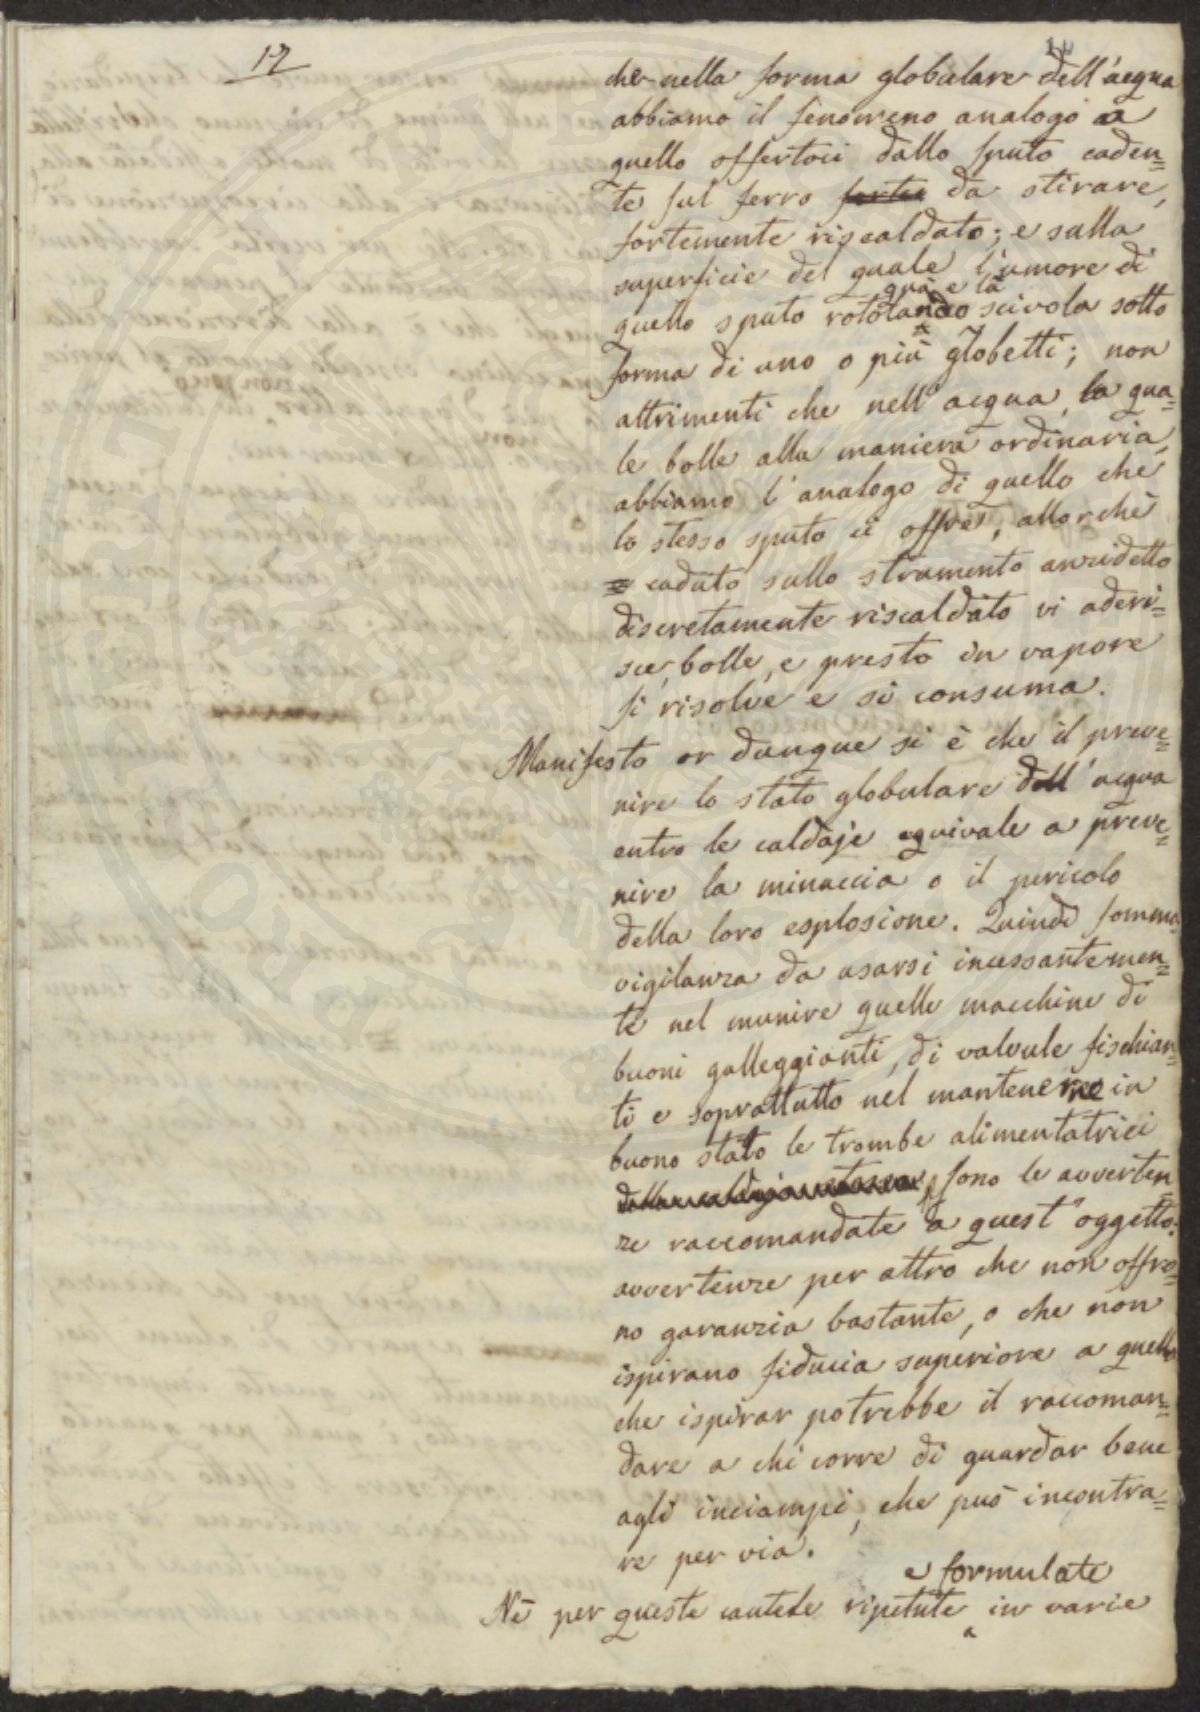 17
che nella forma globulare dell'acqua
abbiamo il fenomeno analogo a
quello offertoci dallo sputo caden=
te sul ferro da stirare,
fortemente riscaldato; e sulla
superficie del quale l'umore di
quà e là
quello sputo rotolando scivola sotto
forma di uno o più globetti; non
altrimenti che nell'acqua, la qua=
le bolle alla maniera ordinaria,
abbiamo l'analogo di quello che
lo stesso sputo ci offre, allorchè
caduto sullo strumento anzidetto
discretamente riscaldato vi aderi=
sce, bolle, e presto in vapore
si risolve e si consuma.
Manifesto or dunque si è che il preve=
nire lo stato globulare dell'acqua
entro le caldaje equivale a preve=
nire la minaccia o il pericolo
della loro esplosione. Quindi somma
vigilanza da usarsi incessantemen=
te nel munire quelle macchine di
buoni galleggianti, di valvule fischian=
ti e soprattutto nel mantenerne in
buono stato le trombe alimentatrici
sono le avverten=
ze raccomandate a quest'oggetto:
avvertenze per altro che non offro=
no garanzia bastante, o che non
ispirano fiducia superiore a quella
che ispirar potrebbe il raccoman=
dare a chi corre di guardar bene
agli inciampi, che può incontra=
re per via.
e formulate
Nè per queste cautele ripetute in varie